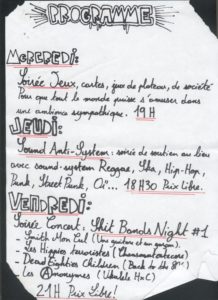 PROGRAMME
MERCREDI:
Soirée Jeux, cartes, jeux de plateau, de société
Pour que tout le monde puisse s'amuser dans
une ambiance sympathique. 19H
JEUDI:
Sound Anti-System: soirée de soutien au lieu
avec sound-system Reggae, Ska, Hip-Hop,
Punk, Street Punk, Oi"... 18H30 Prix Libre.
VENDREDI:
Soirée Concert: Shit Bands Night #1
- Smith
- Les Hippies terroristes
- Deux Enfoirés Children (Back to the
- Les Anonymous
21H Prix Libre!